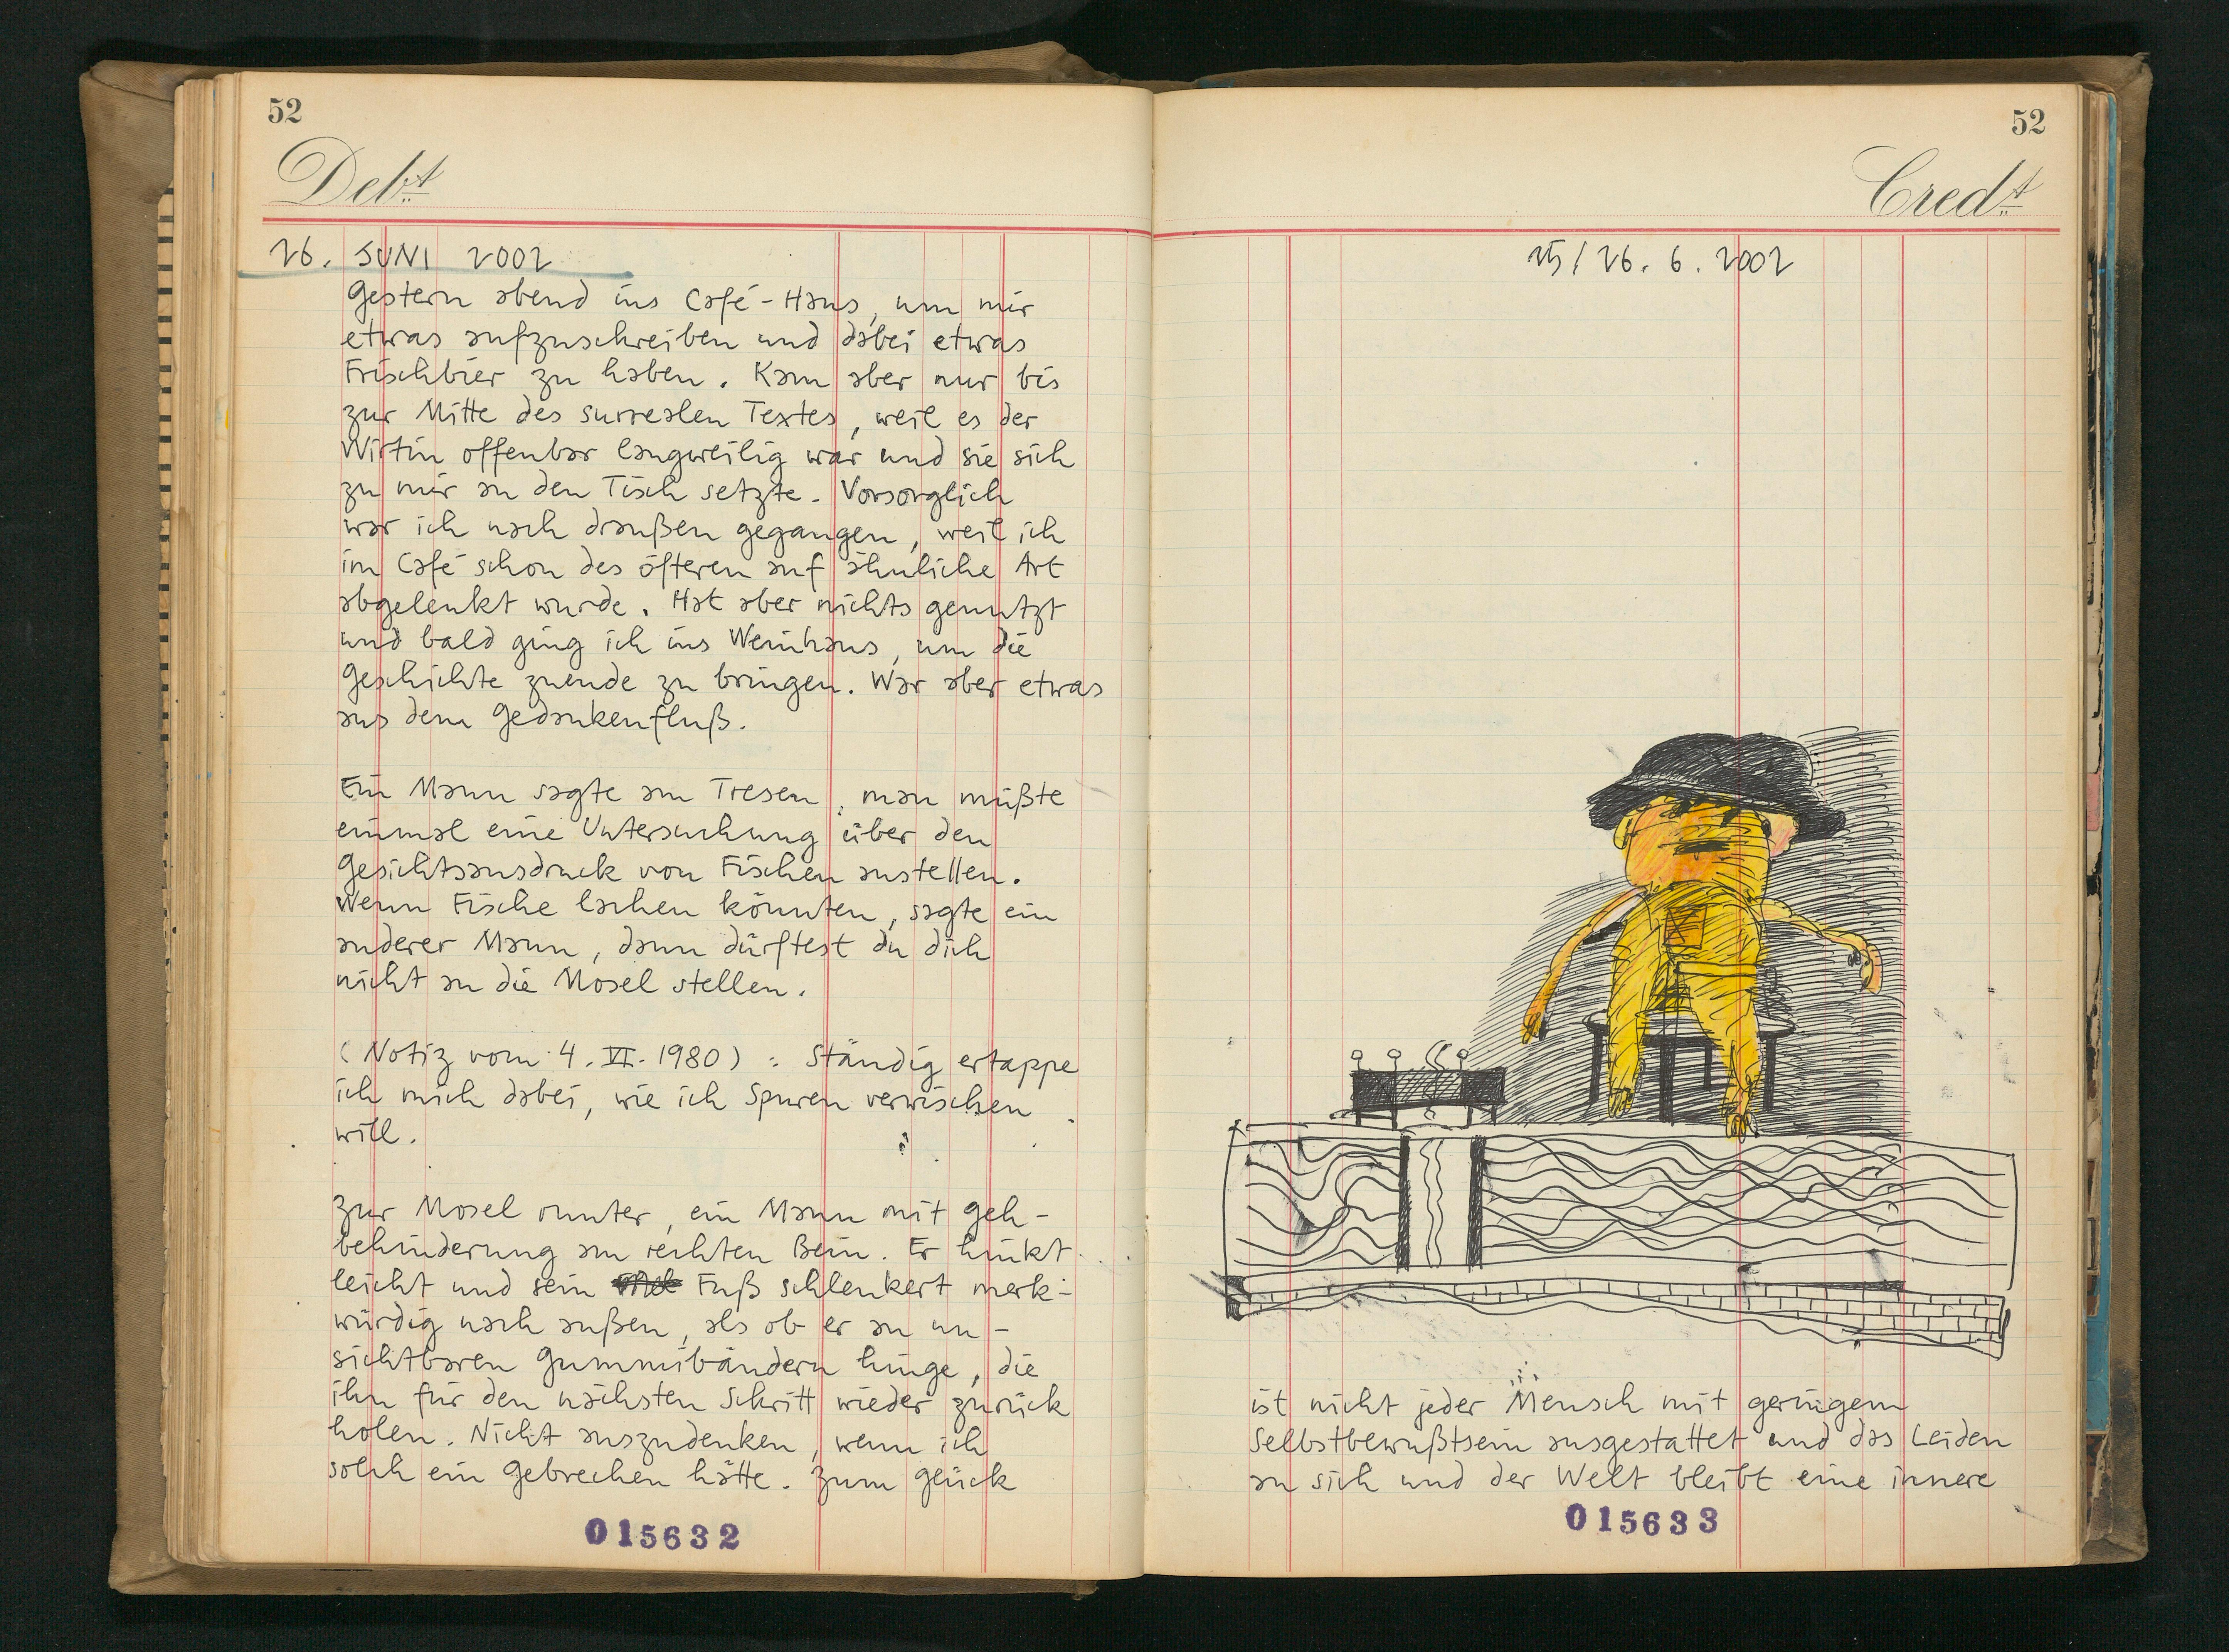 52
Debt
26. JUNI 2002
Gestern abend ins Café-Haus, um mir
etwas aufzuschreiben und dabei etwas
Frischbier zu haben. Kam aber nur bis
zur Mitte des surrealen Textes, weil es der
Wirtin offenbar langweilig war und sie sich
zu mir an den Tisch setzte. Vorsorglich
war ich nach draußen gegangen, weil ich
im Café schon des öfteren auf ähnliche Art
abgelenkt wurde. Hat aber nichts genutzt
und bald ging ich ins Weinhaus, um die
Geschichte zuende zu bringen. War aber etwas
aus dem Gedankenfluß.
Ein Mann sagte am Tresen, man müßte
einmal eine Untersuchung über den
Gesichtsausdruck von Fischen anstellen.
Wenn Fische lachen könnten, sagte ein
anderer Mann, dann dürftest du dich
nicht an die Mosel stellen.
(Notiz vom 4. VI. 1980): Ständig ertappe
ich mich dabei, wie ich Spuren verwischen
will.
Zur Mosel runter, ein Mann mit Geh-
behinderung am rechten Bein. Er hinkt
leicht und sein Fuß schlenkert merk-
würdig nach außen, als ob er an un-
sichtbaren Gummibändern hinge, die
ihn für den nächsten Schritt wieder zurück
holen. Nicht auszudenken, wenn ich
solch ein Gebrechen hätte. Zum Glück
015632
52
Credt
25/26. 6. 2002
ist nicht jeder Mensch mit geringem
Selbstbewußtsein ausgestattet und das Leiden
an sich und der Welt bleibt eine innere
015633